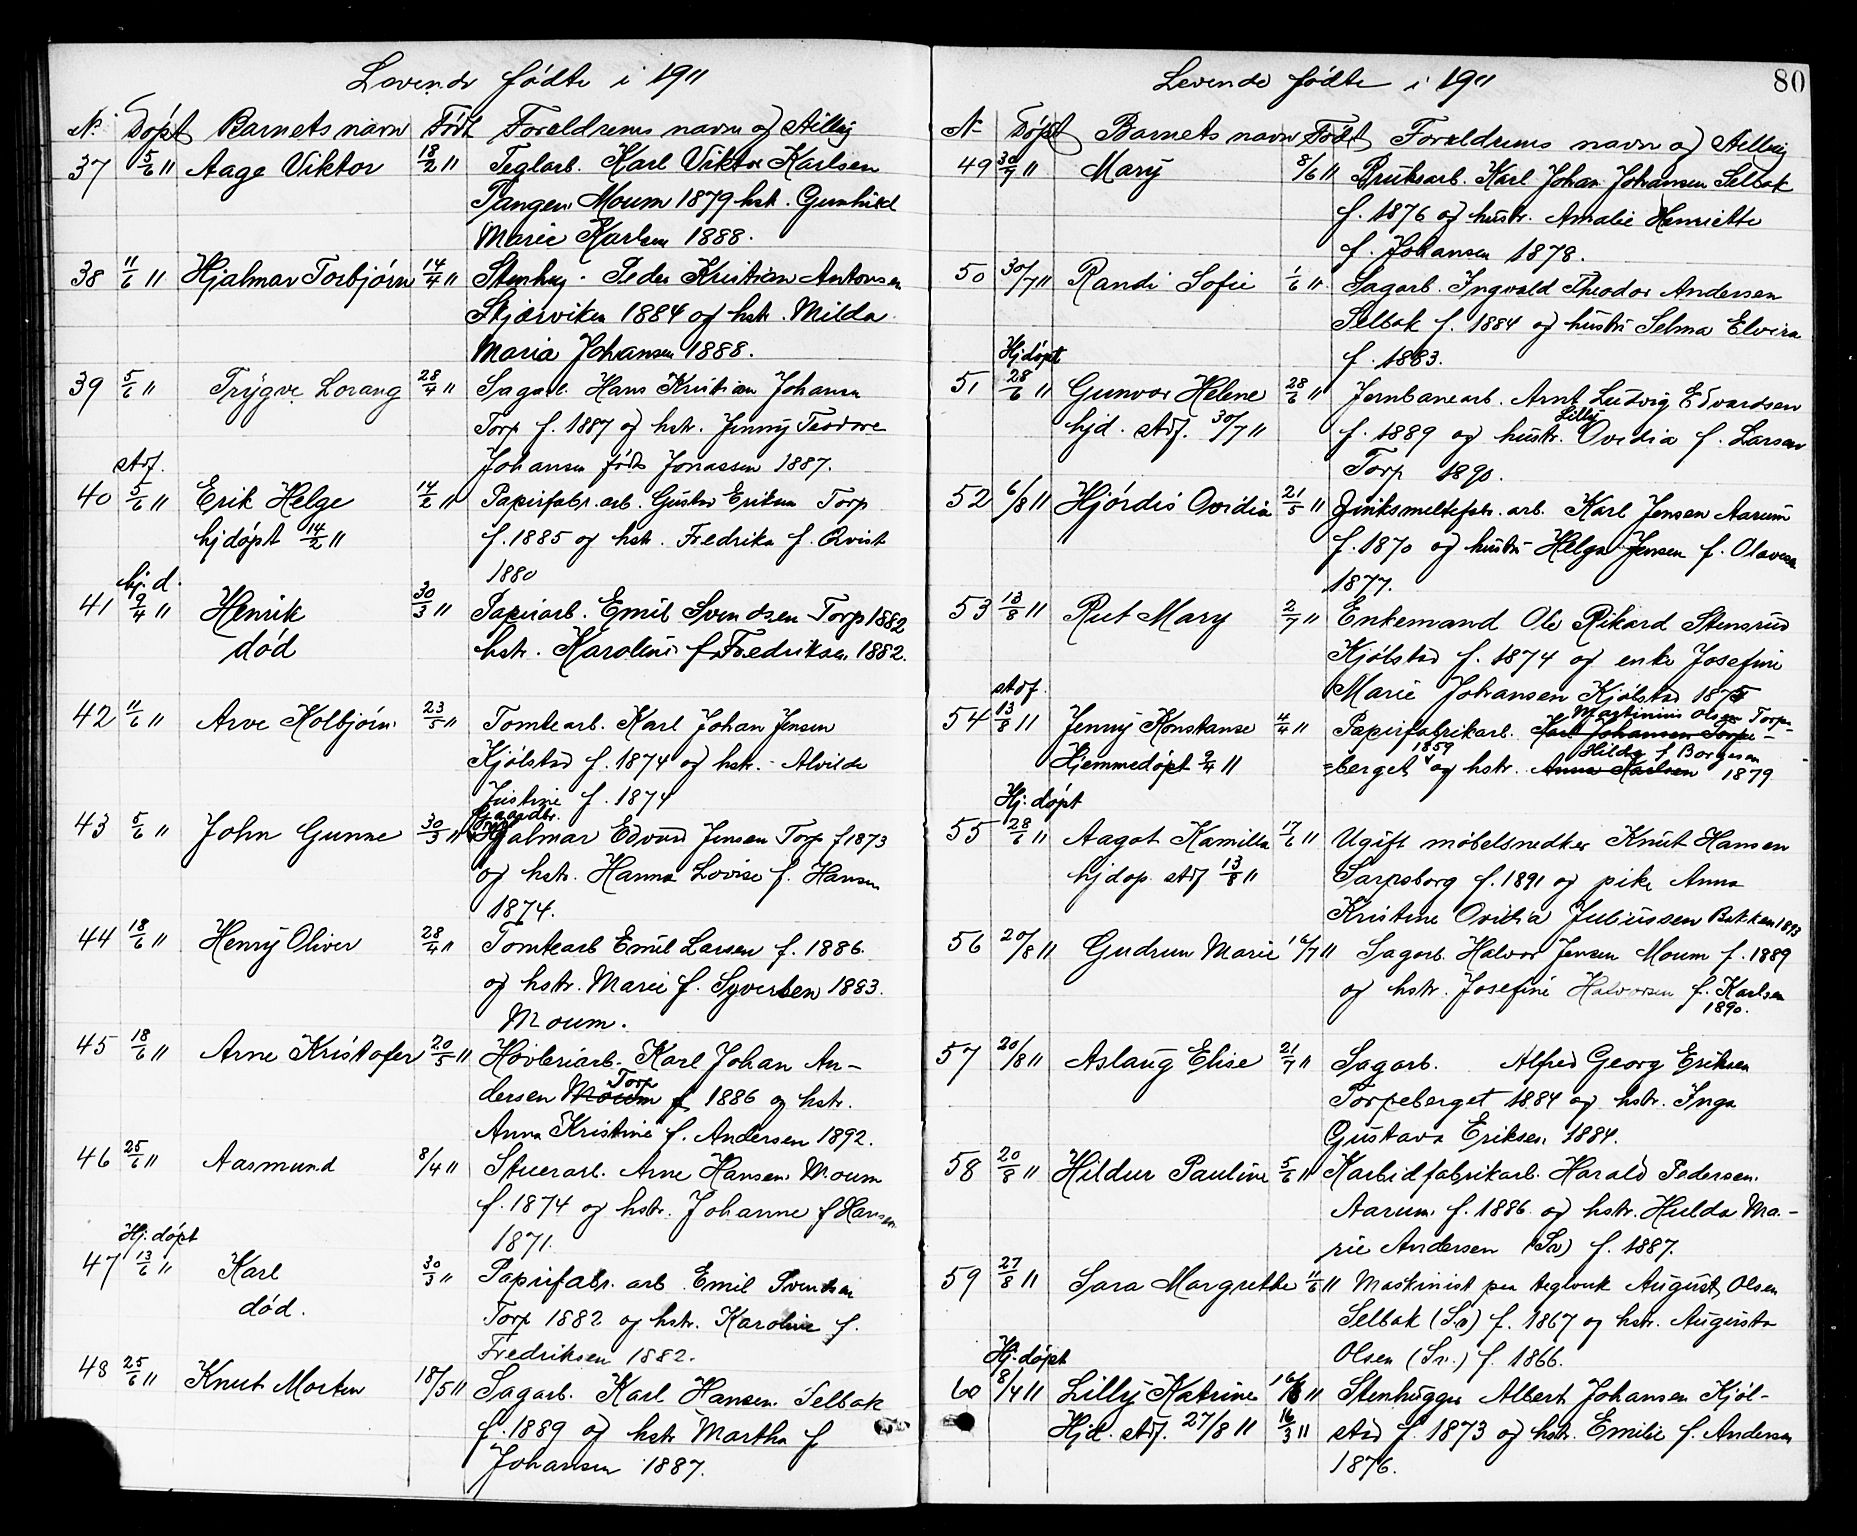 Levende fødte i 1911
No Døpt Barnets navn Født Foreldrenes navn og stilling
37 5/6 11 Aage Viktor 18/2 11 Teglarb. Karl Viktor Karlsen
Tangen Moum 1879 hst. Gunhild
Marie Karlsen 1888.
38 11/6 11 Hjalmar Torbjørn 14/4 11 Stenhug. Peder Kristian Antonsen
Skjærviken 1884 og hstr. Milda
Maria Johansen 1888.
39 5/6 11 Trygve Lorang 28/4 11 Sagarb. Hans Kristian Johansen
Torp f. 1887 og hstr. Jenny Teodore
Johansen født Jonassen 1887.
stdf.
40 5/6 11 Erik Helge 14/2 11 Papirfabr. arb. Gustav Eriksen Torp
hjdøpt 14/2 11 f. 1885 og hst. Fredrika f. Qvist
1880
hj. d.
41 9/4 11 Henrik 30/3 11 Papirarb. Emil Svendsen Torp 1882
død hstr. Karoline f. Fredriksen 1882.
42 11/6 11 Arve Kolbjørn 23/5 11 Tomtearb. Karl Johan Jensen
Kjølstad f. 1874 og hstr. Alvilde
Justine f. 1874
Gaardbr.
43 5/6 11 John Gunne 30/3 11 Hjalmar Edvard Jensen Torp f 1873
og hstr. Hanna Lovise f. Hansen
1874.
44 18/6 11 Henry Oliver 28/4 11 Tomtearb Emil Larsen f. 1886.
og hstr. Marie f. Syversen 1883.
Moum.
45 18/6 11 Arne Kristofer 20/5 11 Høvleriarb. Karl Johan An-
Torp
dersen Moum f 1886 og hstr.
Anna Kristine f. Andersen 1892.
46 25/6 11 Aasmund 8/4 11 Stuerarb. Arne Hansen Moum
f. 1874 og hstr. Johanne f Hansen
1871.
Hj. døpt
47 13/6 11 Karl 30/3 11 Papirfabr. arb Emil Svendsen
død. Torp 1882 og hstr. Karoline f.
Fredriksen 1882.
48 25/6 11 Knut Morten 18/5 11 Sagarb. Karl Hansen Selbak
f. 1889 og hstr Martha f
Johansen 1887.
Levende fødte i 1911
80
No Døpt Barnets navn Født Foreldrenes navn og stilling
49 30/7 11 Mary 8/6 11 Bruksarb. Karl Johan Johansen Selbak
f. 1876 og hustr. Amalie Henriette
f. Johansen 1878.
50 30/7 11 Randi Sofie 1/6 11 Sagarb. Ingvald Theodor Andersen
Selbak f. 1884 og hustr. Selma Elvira
f. 1883.
Hjdøpt
51 28/6 11 Gunvor Helene 28/6 11 Jernbanearb. Arnt Ludvig Edvardsen
Lilly
hjd. stdf. 30/7 11 f. 1889 og hustr. Ovidia f. Larsen
Torp 1890.
52 6/8 11 Hjørdis Ovidia 21/5 11 Zinksmeltefabr. arb. Karl Jensen Aarum
f. 1870 og hustr. Helga Jensen f. Olavesen
1877.
53 13/8 11 Rut Mary 2/7 11 Enkemand Ole Rikard Stensrud
Kjølstad f. 1874 og enke Josefine
Marie Johansen Kjølstad 1875
stdf. Martinius Olsen Torp-
54 13/8 11 Jenny Konstanse 4/4 11 Papirfabrikarb. Karl Johansen Torpe-
1859 Hilda f Borgesen
Hjemmedøpt 9/4 11 =berget og hstr. Anna Karlsen 1879
Hj. døpt
55 28/6 11 Aagot Kamilla 17/6 11 Ugift møbelsnedker Knut Hansen
hjdøp. stdf 13/8 11 Sarpsborg f. 1891 og pike Anna
Kristine Ovidia Juliussen 1893
56 20/8 11 Gudrun Marie 16/7 11 Sagarb. Halvor Jensen Moum f. 1889
og hstr. Josefine Halvorsen f. Karlsen
1890.
57 20/8 11 Aslaug Elise 21/7 11 Sagarb. Alfred Georg Eriksen
Torpeberget 1884 og hstr. Inga
Gustava Eriksen 1884.
58 20/8 11 Hildur Pauline 5/6 11 Karbidfabrikarb. Harald Pedersen
Aarum f. 1886 og hstr. Hulda Ma-
rie Andersen (Sv) f. 1887.
59 27/8 11 Sara Margrethe 11/6 11 Maskinist paa teglverk August Olsen
Selbak (Sv) f. 1867 og hstr. Augusta
Olsen (Sv.) f. 1866.
Hj. døpt
60 8/4 11 Lilly Katrine 16/3 11 Stenhugger Albert Johansen Kjøl-
Hjd. stdf. 27/8 11 16/3 11 stad f. 1873 og hstr. Emilie f. Andersen
1876.